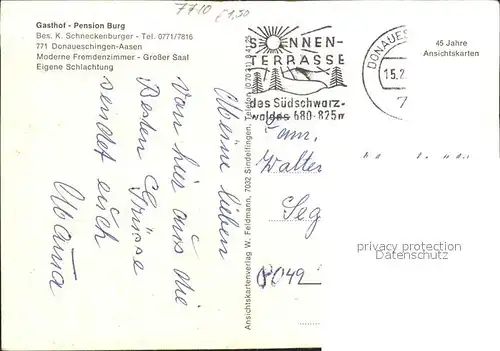 Gasthof - Pension Burg
Bes. K. Schneckenburger - Tel. 0771/7816
771 Donaueschingen-Aasen
Moderne Fremdenzimmer - Großer Saal
Eigene Schlachtung
7710
SONNEN-
TERRASSE
des Südschwarz-
waldes 680-825m
DONAUES
15.2
7
45 Jahre
Ansichtskarten
Meine lieben
von hier aus die
Besten Grüsse
sendet euch
Ansichtskartenverlag W. Feldmann, 7032 Sindelfingen, Telefon
Fam.
Walter
Seg
8049
privacy protection
watermark